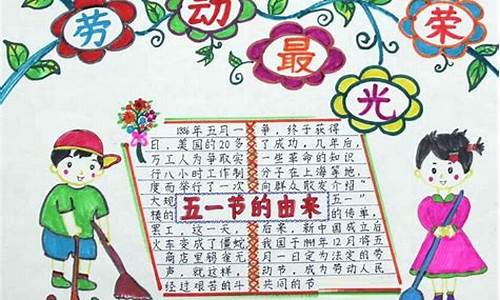 劳动最光荣
1886年五月一
日，美国的20多
万工人为争取实
行八小时工作制
度而举行了一次
大
模的
罢工，这一天
火车变成了僵蛇
商店里鸦雀无
声，就这样，
经过艰苦的斗
五一节的由来
争，终于获得
了成功，几年后，
一些革命的知识
分子在上海等地，
向群众散发介绍
五一"
的传单，
后来，新中国成立后
我国于1949年12月将五
月一日定为法定的劳
动节，成为劳动人民
共同的节